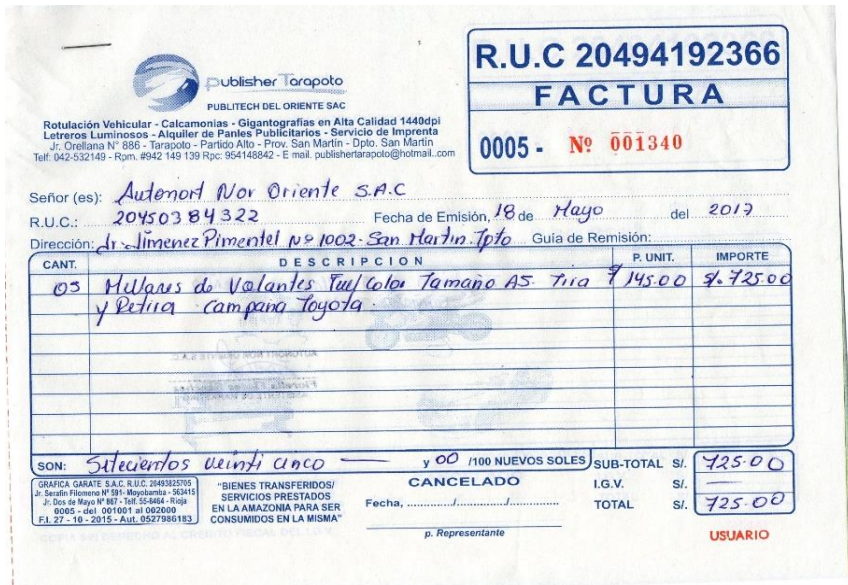 Publisher Tarapoto
PUBLITECH DEL ORIENTE SAC
Rotulación Vehicular - Calcamonias - Gigantografias en Alta Calidad 1440dpi
Letreros Luminosos - Alquiler de Panles Publicitarios - Servicio de Imprenta
Jr. Orellana N° 886 - Tarapoto - Partido Alto - Prov. San Martín - Dpto. San Martín
Telf: 042-532149 - Rpm. #942 149 139 Rpc: 954148842 - E mail. publishertarapoto@hotmail..com
R.U.C 20494192366
FACTURA
0005 - Nº 001340
Señor (es): Autonort Nor Oriente S.A.C
R.U.C.: 20450384322 Fecha de Emisión, 18 de Mayo del 2017
Dirección: Jr. Jimenez Pimentel Nº 1002 - San Martin. Tpto Guía de Remisión:
CANT. DESCRIPCION P. UNIT. IMPORTE
05 Millares de Volantes Full Color Tamaño A5. Tira 145.00 S/. 725.00
y Retira campaña Toyota.
SON: Setecientos veinti cinco y 00 /100 NUEVOS SOLES SUB-TOTAL S/. 725.00
GRAFICA GARATE S.A.C. R.U.C. 20493825705
Jr. Serafin Filomeno Nº 591- Moyobamba - 563415
Jr. Dos de Mayo Nº 867 - Telf. 55-8464 - Rioja
0005 - del 001001 al 002000
F.I. 27 - 10 - 2015 - Aut. 0527986183
"BIENES TRANSFERIDOS/
SERVICIOS PRESTADOS
EN LA AMAZONIA PARA SER
CONSUMIDOS EN LA MISMA"
CANCELADO
Fecha, ........../........../..........
p. Representante
I.G.V. S/. —
TOTAL S/. 725.00
USUARIO